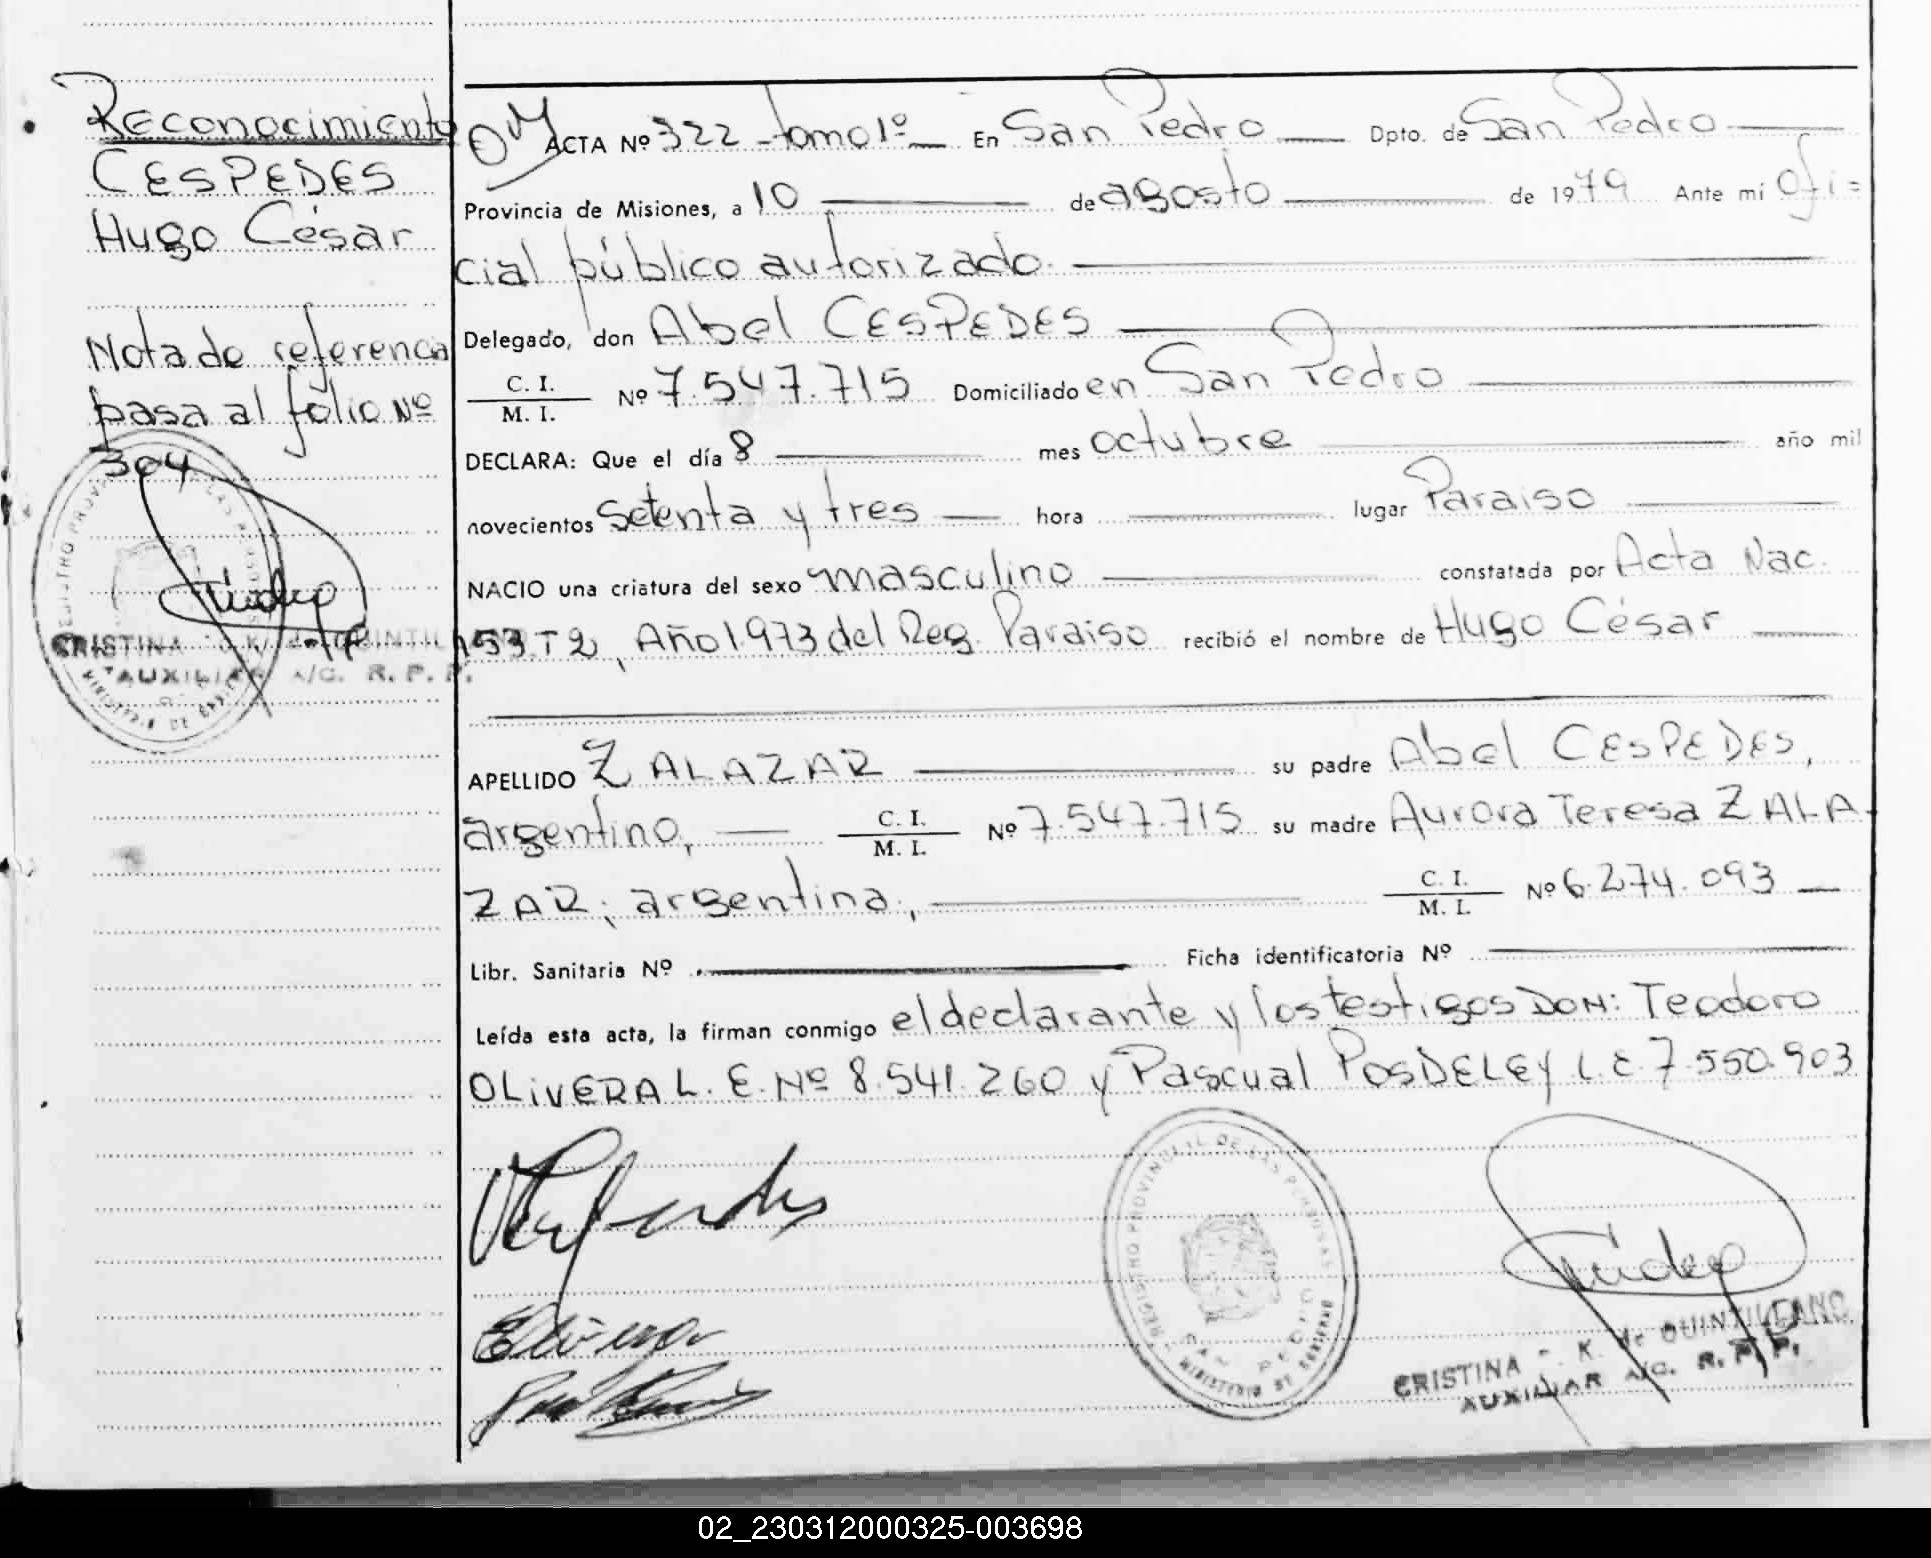 Reconocimiento
CESPEDES
Hugo César
Nota de referencia
pasa al fólio Nº
304
REGISTRO PROVINCIAL DE LAS PERSONAS
CRISTINA K. de QUINTIL
AUXILIAR A/C. R. P. P.
ACTA Nº 322 - tomo 1º En San Pedro Dpto. de San Pedro
Provincia de Misiones, a 10 de agosto de 1979 Ante mí Ofi=
cial público autorizado.
Delegado, don Abel CESPEDES
C. I.
M. I. Nº 7.547.715 Domiciliado en San Pedro
DECLARA: Que el día 8 mes octubre año mil
novecientos setenta y tres hora lugar Paraiso
NACIO una criatura del sexo masculino constatada por Acta Nac.
153.T2, Año 1.973 del Reg. Paraiso recibió el nombre de Hugo César
APELLIDO ZALAZAR su padre Abel CESPEDES,
argentino, C. I. M. I. Nº 7.547.715 su madre Aurora Teresa ZALA-
ZAR, argentina, C. I. M. I. Nº 6.274.093
Libr. Sanitaria Nº Ficha identificatoria Nº
Leída esta acta, la firman conmigo el declarante y los testigos DON: Teodoro
OLIVERA L. E. Nº 8.541.260 y Pascual POSDELEY L.E. 7.550.903
REGISTRO PROVINCIAL DE LAS PERSONAS
SAN PEDRO
MINISTERIO DE GOBIERNO
CRISTINA K. de QUINTILEANO
AUXILIAR A/C. R. P. P.
02_230312000325-003698